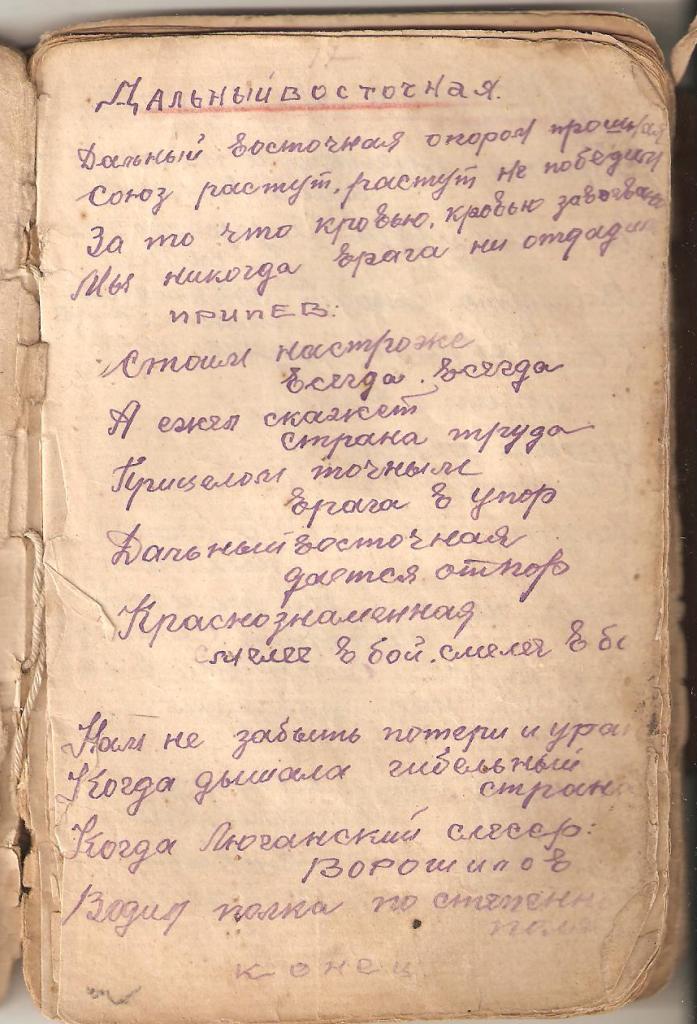 Дальныйвосточная.
Дальный восточная опором прошная
Союз растут, растут не победим
За то что кровью, кровью завоеван
Мы никогда врага ни отдадим
ПРИПЕВ:
Стоим настроже
всегда. всегда
А ежел скажет
страна труда
Прицелом точным
врага в упор
Дальныйвосточная
дается отпор
Краснознаменная
смелее в бой. смелее в бо
Нам не забыть потери и ура
Когда дышала гибельный
стран
Когда Люганский слесар:
ВОРОШИЛОВ
Водил полка по степенн
поля
конец